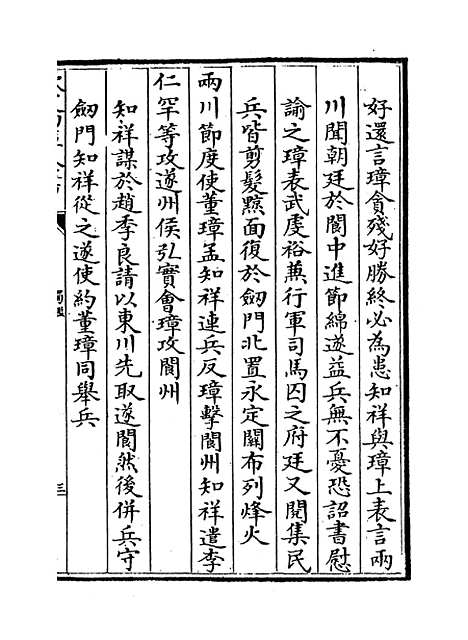 好還言璋貪殘好勝終必為患知祥與璋上表言兩
川聞朝廷於閬中進節綿遂益兵無不憂恐詔書慰
諭之璋表武虔裕兼行軍司馬囚之府廷又閲集民
兵皆剪髮黥面復於劒門北置永定關布列烽火
兩川節度使董璋孟知祥連兵反璋擊閬州知祥遣李
仁罕等攻遂州侯弘實會璋攻閬州
知祥謀於趙季良請以東川先取遂閬然後併兵守
劒門知祥從之遂使約董璋同舉兵
三